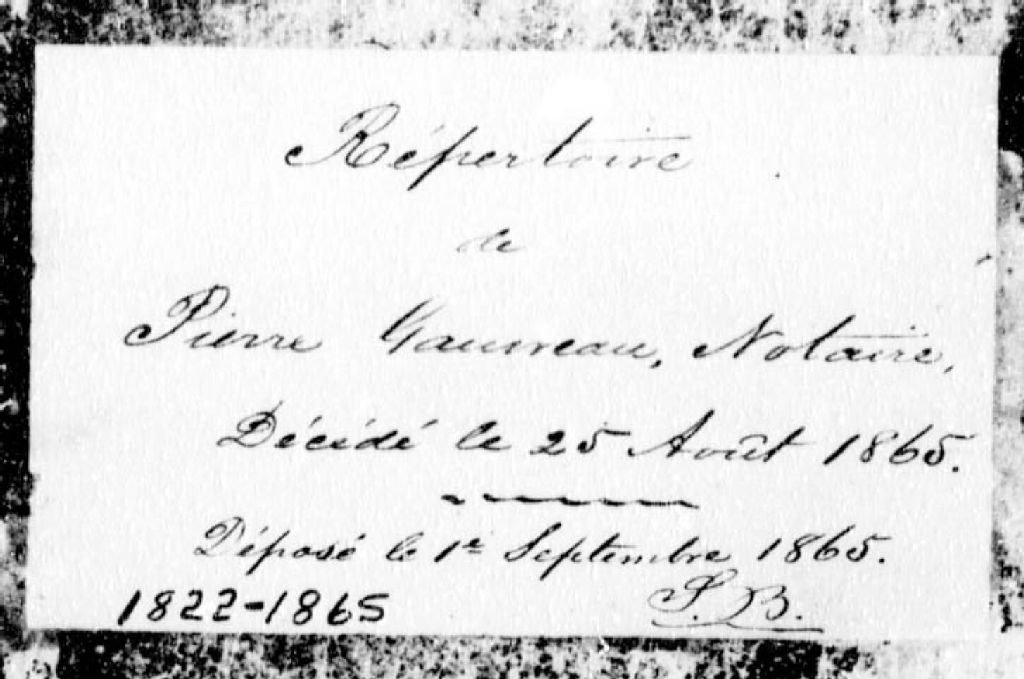 Répertoire
de
Pierre Gauvreau, Notaire,
Décédé le 25 Août 1865.
Déposé le 1er Septembre 1865.
1822-1865 S.B.